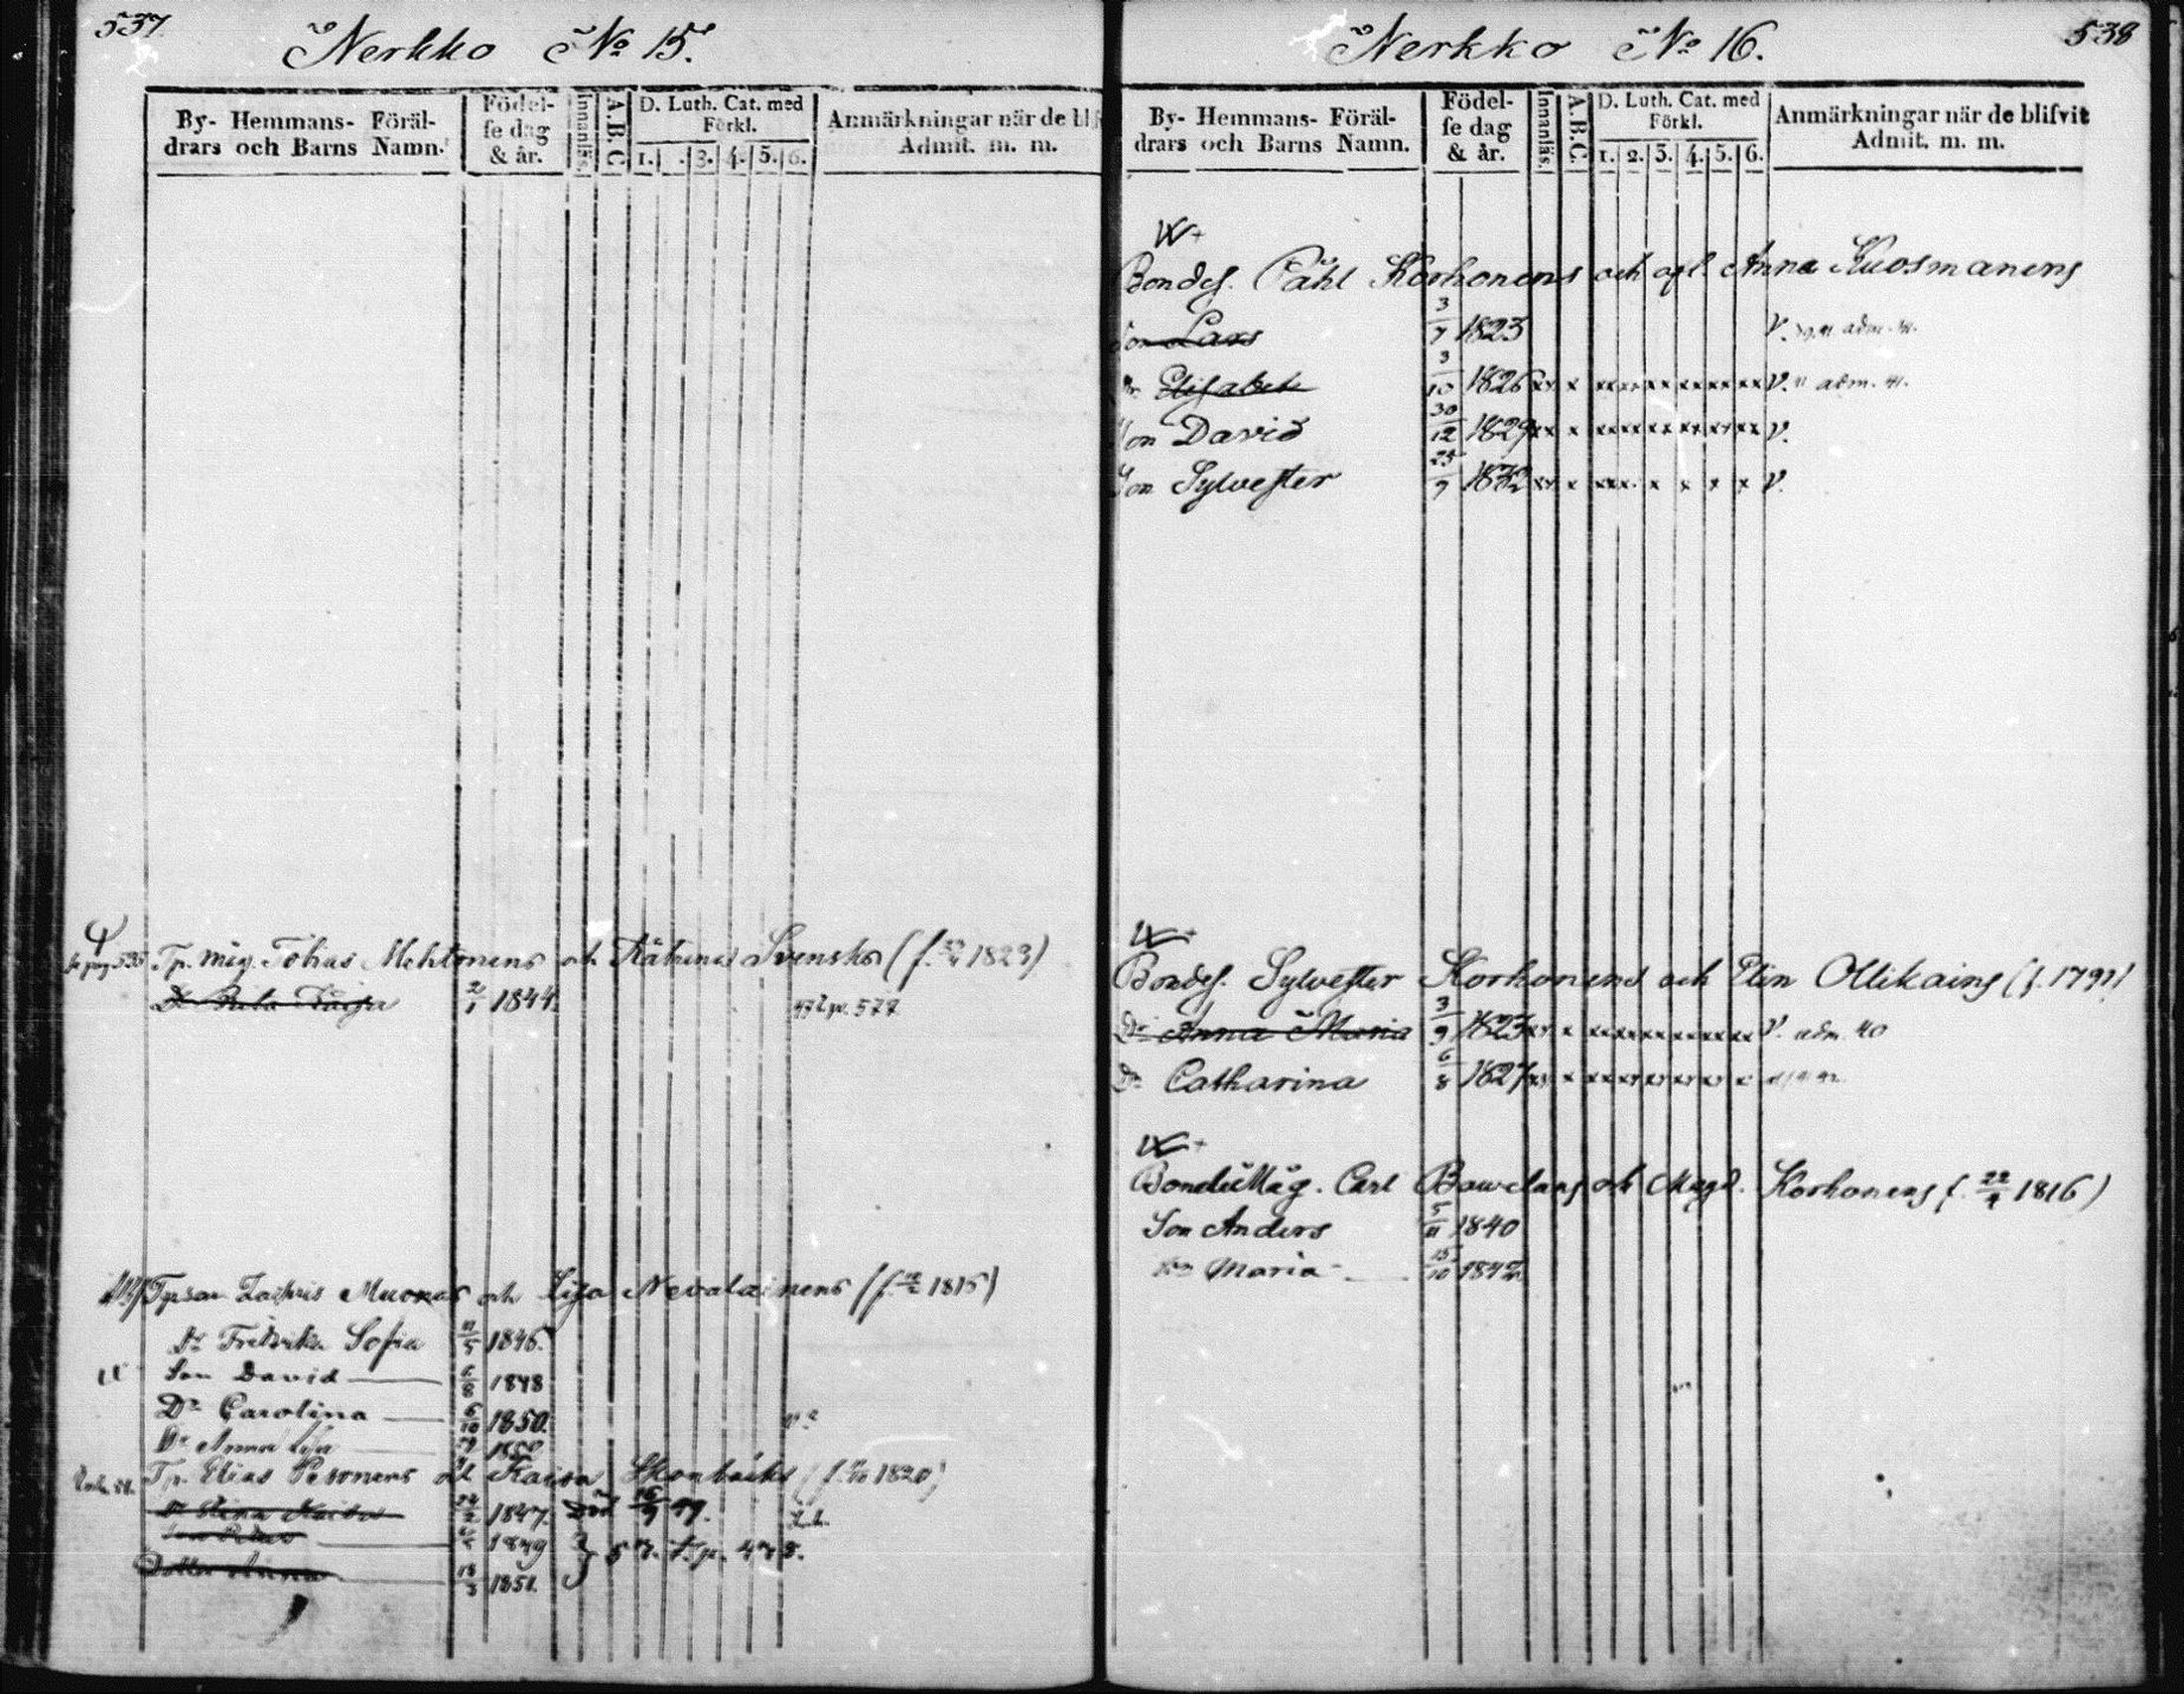 537
Nerkko No 15.
By- Hemmans- Föräl-
drars och Barns Namn.
Födel-
se dag
& år.
Innanläs.
A.B.C
D. Luth. Cat. med
Förkl.
1. . 3. 4. 5. 6.
Anmärkningar när de blif
Admit. m. m.
Tp. måg. Tobias Mehtonens och Kätrina Svensks (f. 1823)
2/1 1844.
Muonas och Lisa Nevalainens (f. 1815)
Dr Fredrika Sofia 11/5 1846.
Son David 6/8 1848
Dr Carolina 6/10 1850.
Dr Anna Lisa
Tp. Elias Pesonens och Kaisa (f. 1820)
1847. Död 16/9 49.
1849
Dotter Anna 18/3 1851.
538
Nerkko No 16.
By- Hemmans- Föräl-
drars och Barns Namn.
Födel-
se dag
& år.
Innanläs.
A.B.C.
D. Luth. Cat. med
Förkl.
1. 2. 3. 4. 5. 6.
Anmärkningar när de blifvit
Admit. m. m.
Bondes. Påhl Korhonens och afl. Anna Kuosmanens
Son Lars 3/7 1823 V. adm.
Dr Elisabet 3/10 1826 xx x xx xx xx xx xx xx V. adm. 41.
Son David 30/12 1829 xx x xx xx xx xx xx xx V.
Son Sylvester 25/9 1832 xx x xx x. x x x x V.
Bondes. Sylvester Korhonens och Elin Ollikains (f. 1791)
Dr Anna Maria 3/9 1823 xx x xx xx xx xx xx xx V. adm. 40
Dr Catharina 6/8 1827 xx x xx xx xx xx xx x
BondeMåg. Carl och Magd. Korhonens f. 22/4 1816)
Son Anders 5/11 1840
Dr Maria 15/10 1842